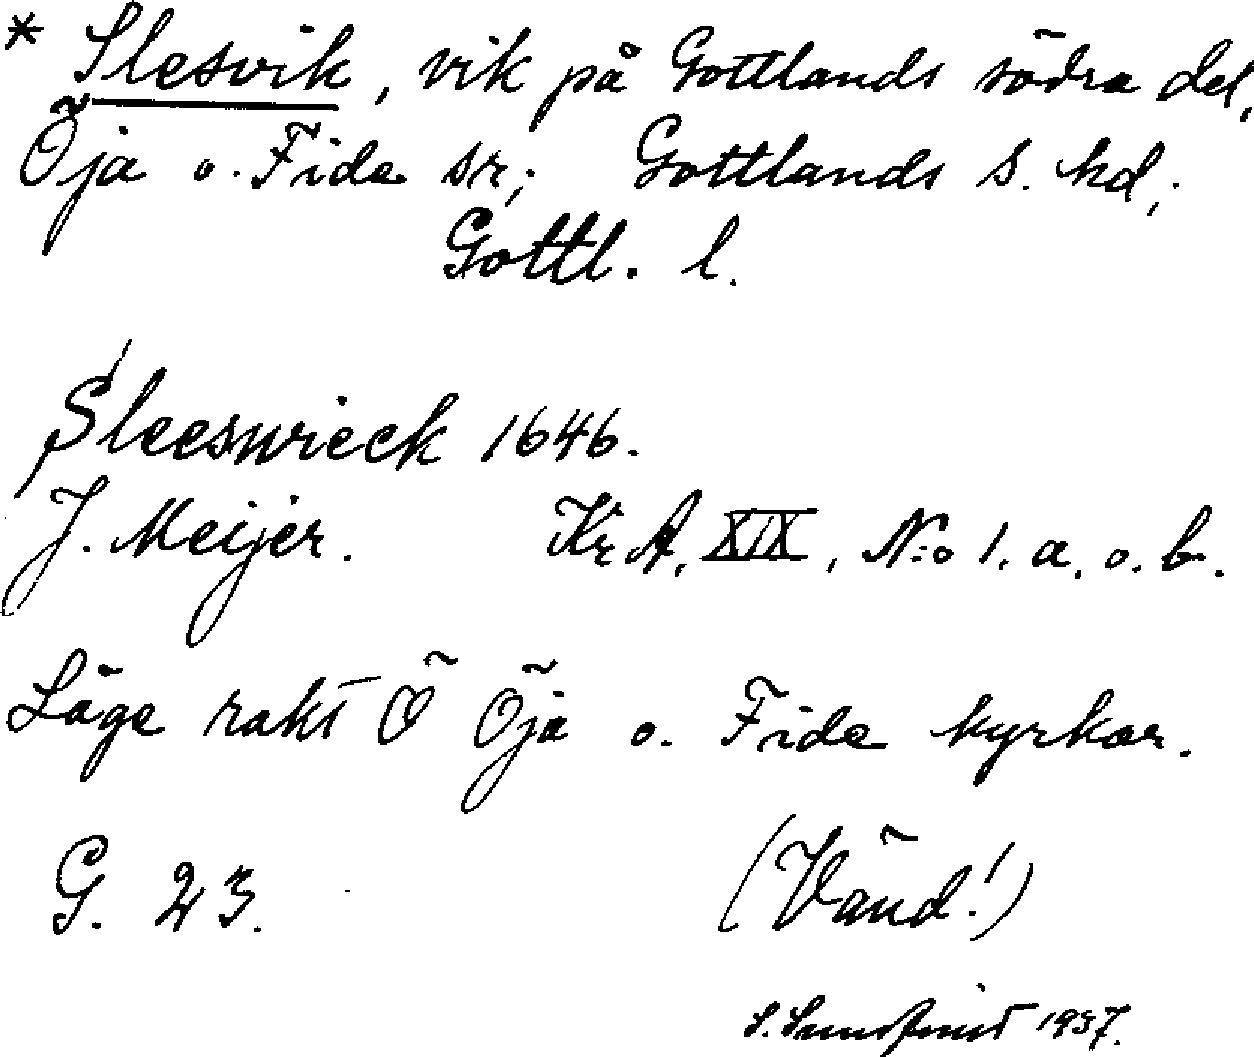 * Slesvik, vik på Gottlands södra del,
Öja o. Fide sr; Gottlands S. hd,;
Gottl. l.
Sleeswieck 1646.
J. Meijer. KrA, XIX, N:o 1. a. o. b.
Läge rakt Ö Öja o. Fide kyrkor.
G. 23. (Vänd!)
S. 1937.